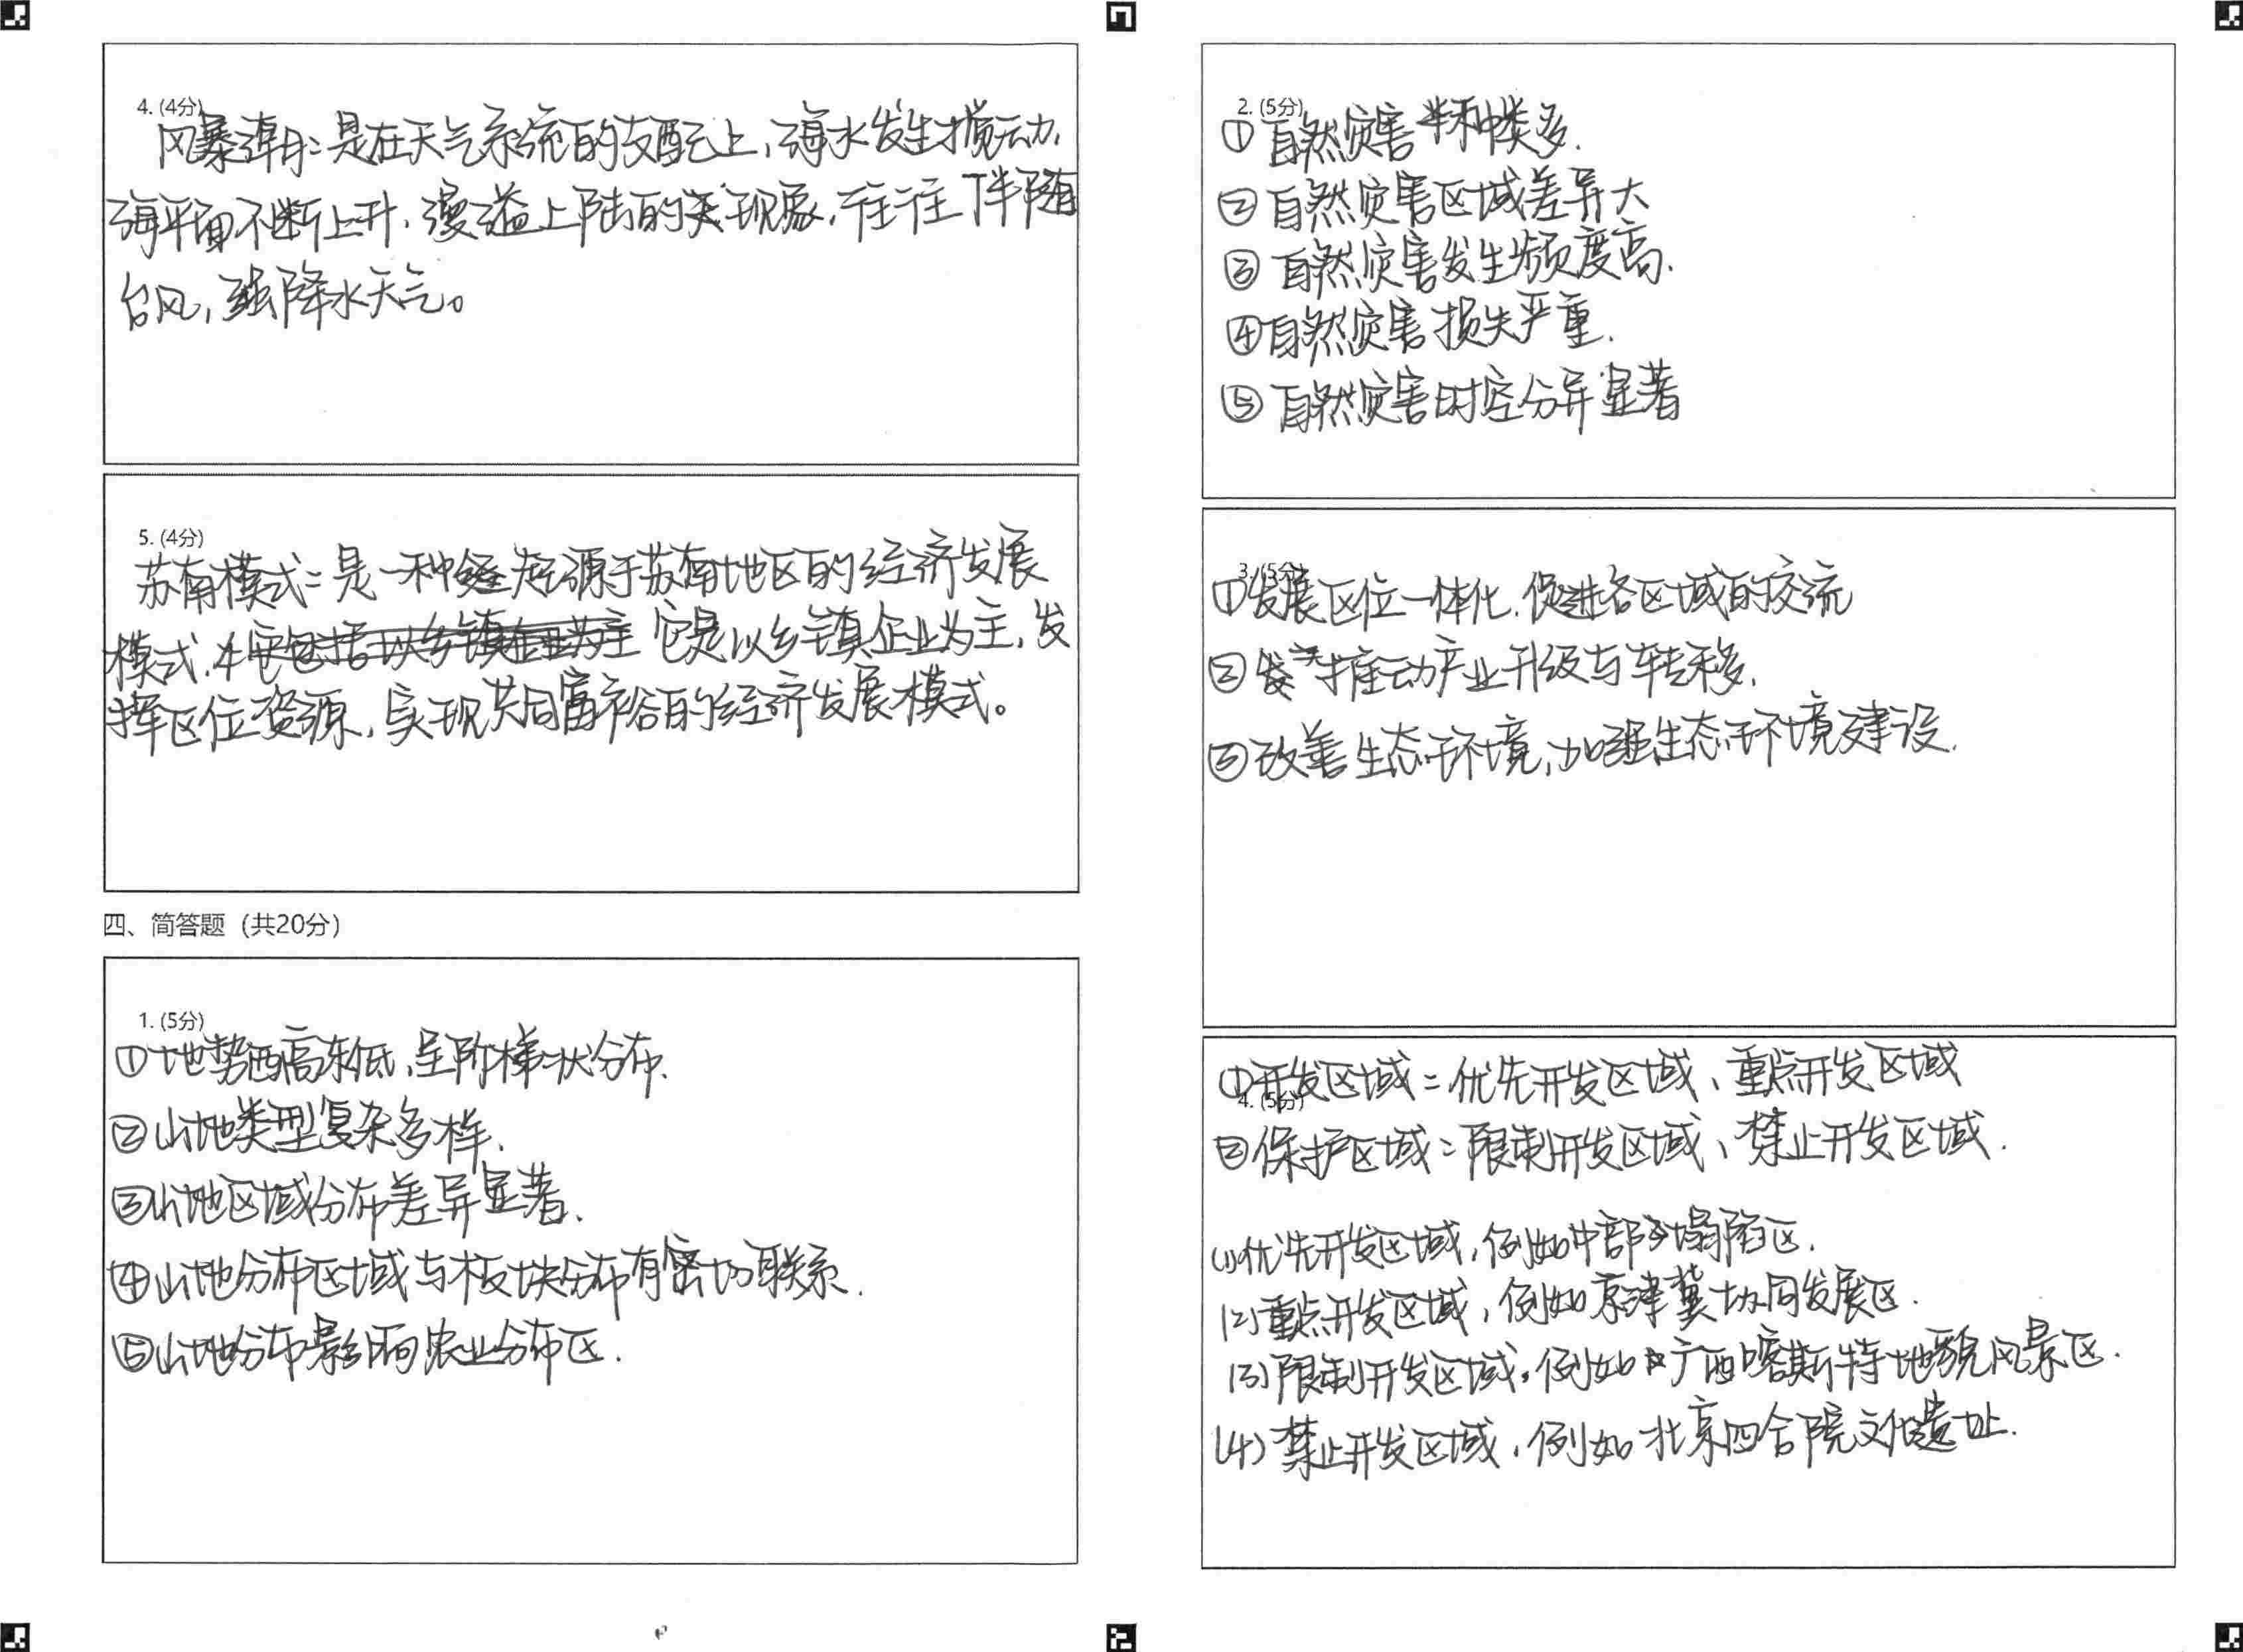 4. (4分)
风暴潮：是在天气系统的支配上，海水发生搅动，
海平面不断上升，漫溢上陆的现象，往往伴随
台风，强降水天气。
5. (4分)
苏南模式：是一种起源于苏南地区的经济发展
模式，它是以乡镇企业为主，发
挥区位资源，实现共同富裕的经济发展模式。
四、简答题（共20分）
1. (5分)
①地势西高东低，呈阶梯状分布.
②山地类型复杂多样.
③山地区域分布差异显著.
④山地分布区域与板块分布有密切联系.
⑤山地分布影响农业分布区.
2. (5分)
①自然灾害种类多.
②自然灾害区域差异大
③自然灾害发生频度高.
④自然灾害损失严重.
⑤自然灾害时空分异显著
3. (5分)
①发展区位一体化，促进各区域的交流
②推动产业升级与转移.
③改善生态环境，加强生态环境建设.
①开发区域：优先开发区域、重点开发区域
4. (5分)
②保护区域：限制开发区域、禁止开发区域.
(1)优先开发区域，例如中部塌陷区.
(2)重点开发区域，例如京津冀协同发展区.
(3)限制开发区域，例如广西喀斯特地貌风景区.
(4)禁止开发区域，例如北京四合院文化遗址.